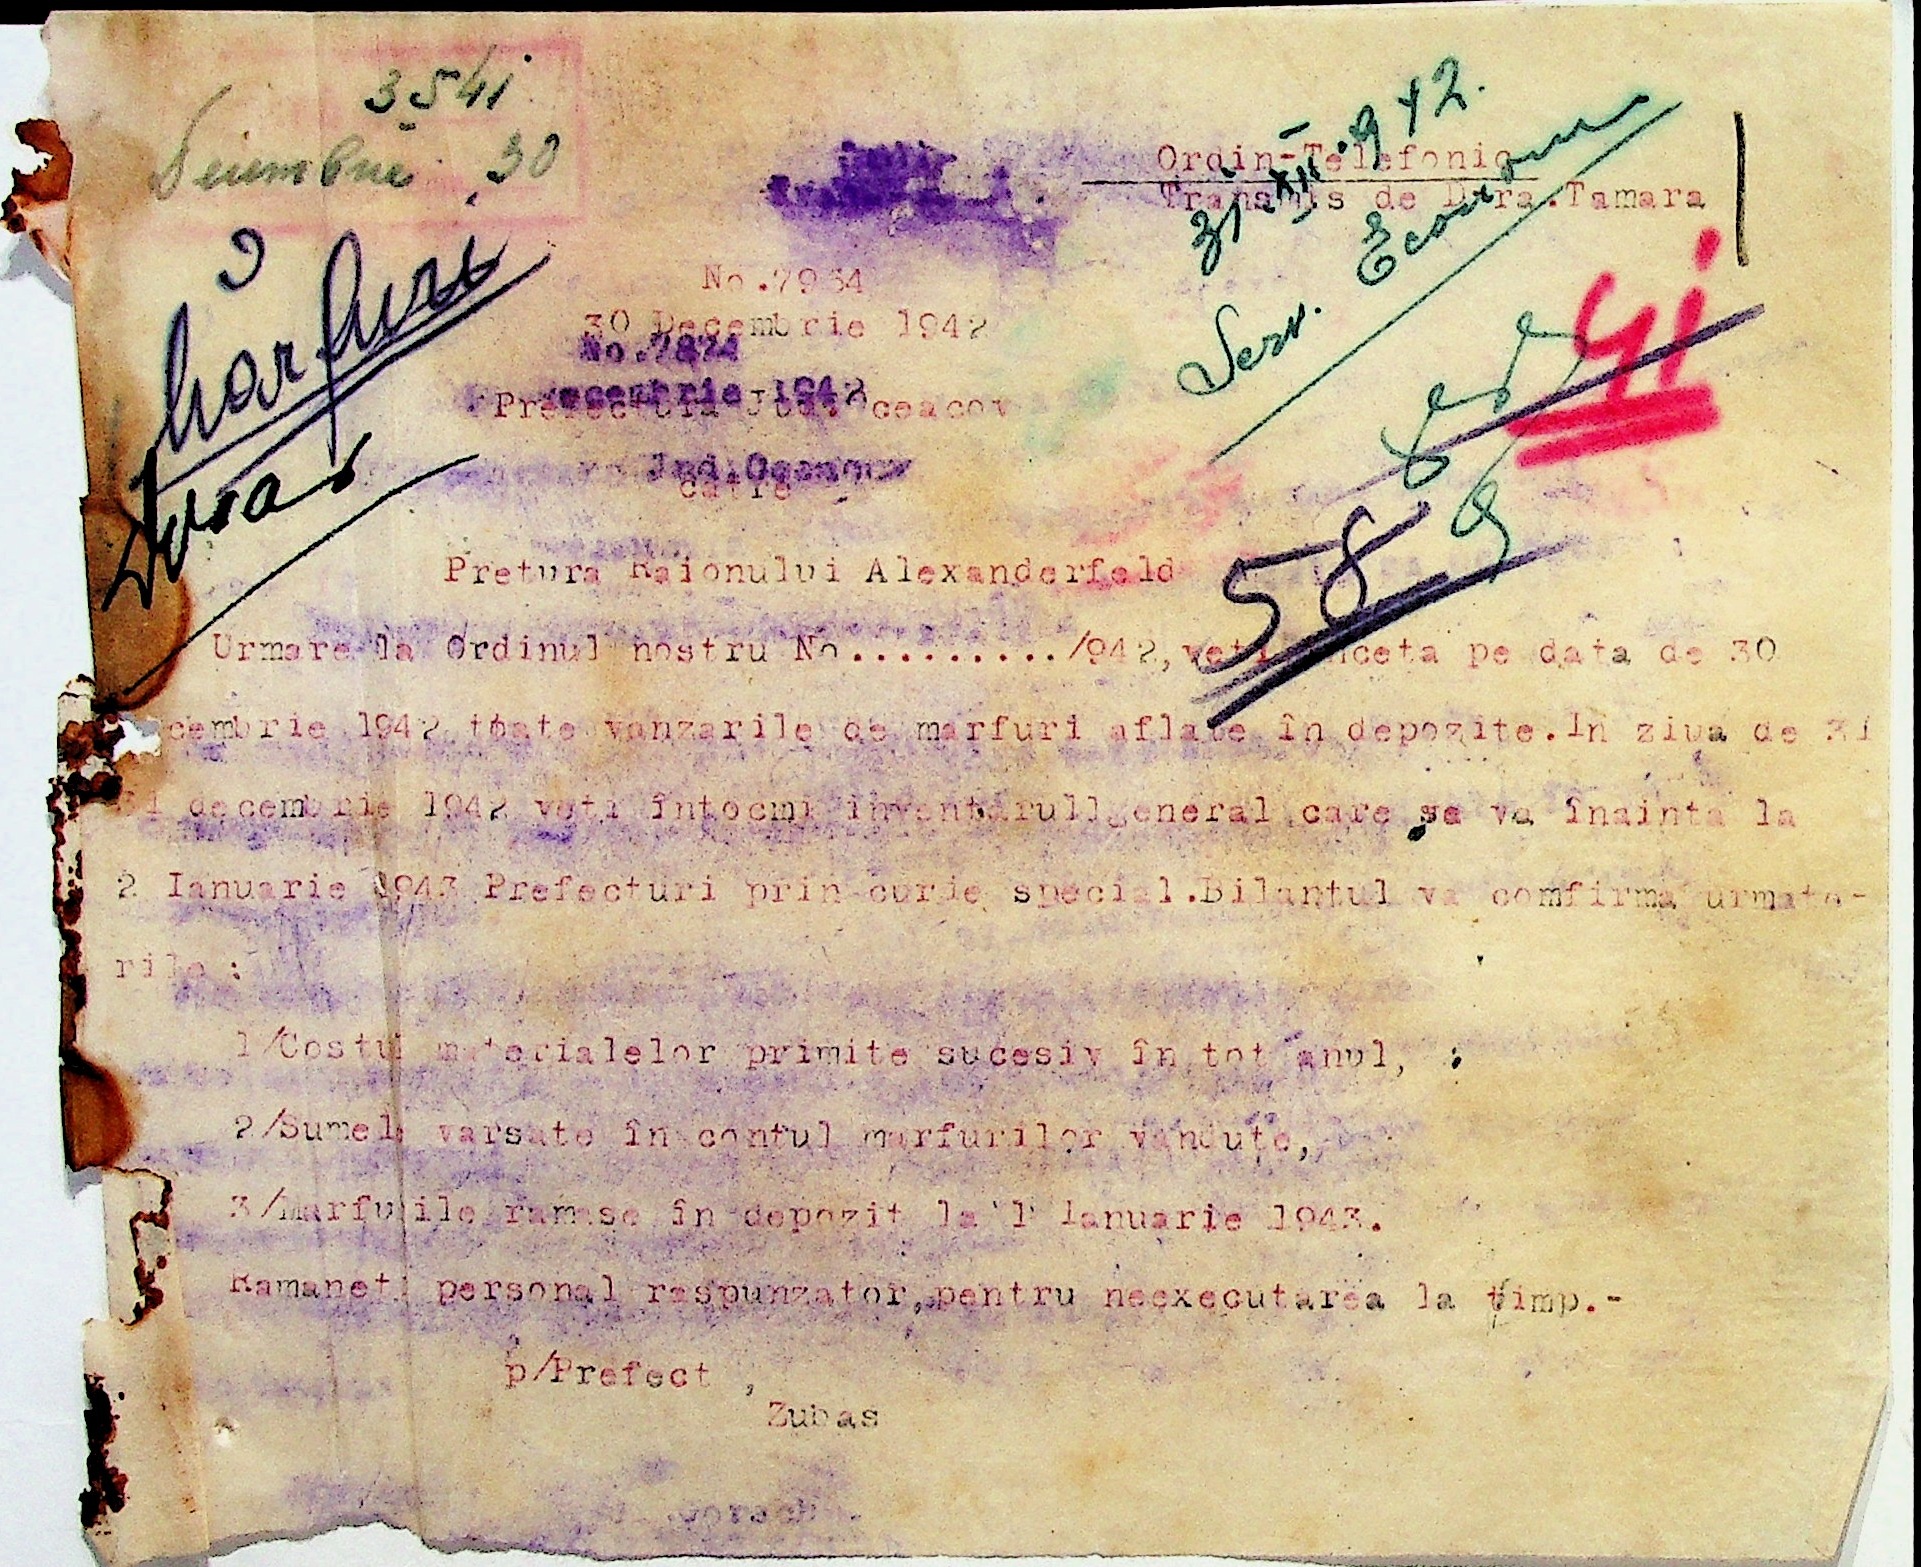 3541
Decembrie 30
Ordin-Telefonic
Transmis de D.ra.Tamara
31 XII 942.
Serv. Economic
No.7934
30 Decembrie 1942
No.7874
Decembrie 1942
Prefectura Jud. Oceacov
Jud.Oceacov
Catre
Marfuri
Dosar
41
58
Pretura Raionului Alexanderfeld
Urmare la Ordinul nostru No........./942,veti inceta pe data de 30
cembrie 1942 toate vanzarile de marfuri aflate în depozite.In ziua de 31
31 decembrie 1942 veti întocmi inventarull general care sa va înainta la
2 Ianuarie 1943 Prefecturi prin curie special.Bilantul va comfirma urmato-
rile :
1/Costul materialelor primite sucesiv în tot anul, :
2/Sumele varsate în contul marfurilor vandute,
3/Marfurile ramase în depozit la 1 Ianuarie 1943.
Ramaneti personal raspunzator,pentru neexecutarea la timp.-
p/Prefect ,
Zubas